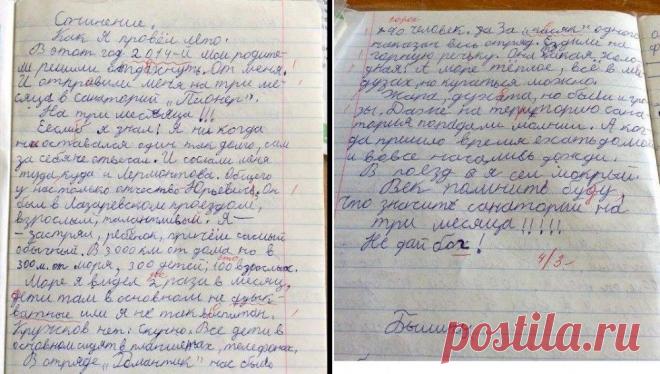 Сочинение.
Как я провёл лето.
В этот год 2014-й мои родите-
ли решили отдохнуть. От меня.
И отправили меня на три ме-
сяца в санаторий „Пионер".
На три месяца!!!
Если б я знал! Я ни когда
не оставался один так долго, сам
за себя не отвечал. И сослали меня
туда куда и Лермонтова. Общего
у нас только отчество Юрьевич. Он
был в Лазаревском проездом,
взрослый, талантливый. Я-
- застрял, ребёнок, причём самый
обычный. В 3000 км от дома, но в
300 м. от моря, 300 детей, 100 взрослых.
Море я видел 2 раза в месяц,
дети там в основном не
или я не так воспитан.
Кружков нет. Скучно. Все дети в
основном сидят в планшетах, телефонах.
В отряде „Романтик" нас было
40 человек. За одного
наказан весь отряд. Ездили на
горную речку. Она дикая и холо-
дная! А море тёплое, всё в ме-
дузах, но купаться можно.
Жара, духота, но были и гро-
зы. Даже на территорию сана-
тория попадали молнии. А ког-
да пришло время ехать домой
и вовсе начались дожди.
В поезд я сел мокрый.
Век помнить буду,
что значит санаторий на
три месяца!!!!!
Не дай бох!
4/3-
posti.la.ru